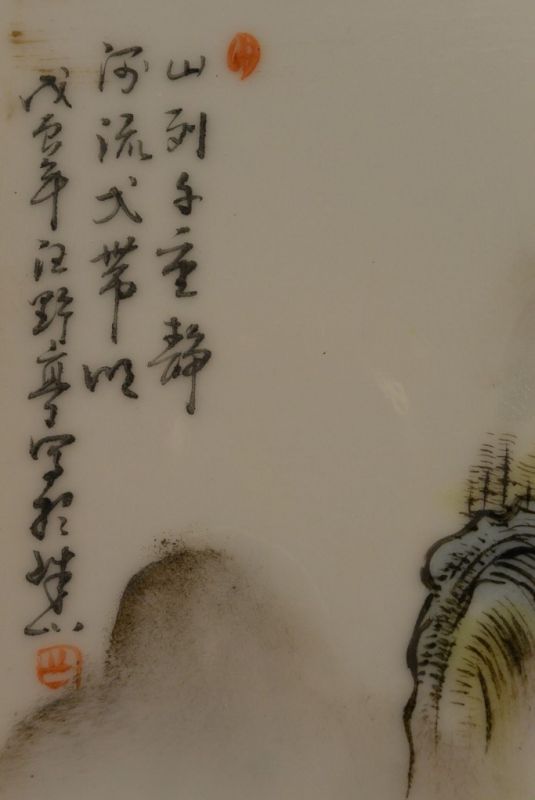 山列千重静
河流弋带明
戊寅年汪野亭写于珠山